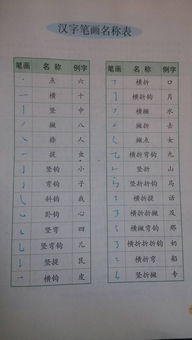 汉字笔画名称表
笔画 名 称 例字 笔画 名 称 例字
丶 点 六 𠃍 横折 口
一 横 十 横折钩 月
丨 竖 中 ㇇ 横撇 水
丿 撇 八 ㇜ 撇折 去
㇏ 捺 人 撇点 女
㇀ 提 虫 横折弯钩 九
亅 竖钩 小 竖折 山
弯钩 子 竖折折钩 马
㇂ 斜钩 我 横折提 话
卧钩 心 横折折撇 及
乚 竖弯 四 横撇弯钩 那
乚 竖弯钩 儿 横折折折钩 奶
竖提 民 横折弯 船
乛 横钩 皮 竖折撇 专